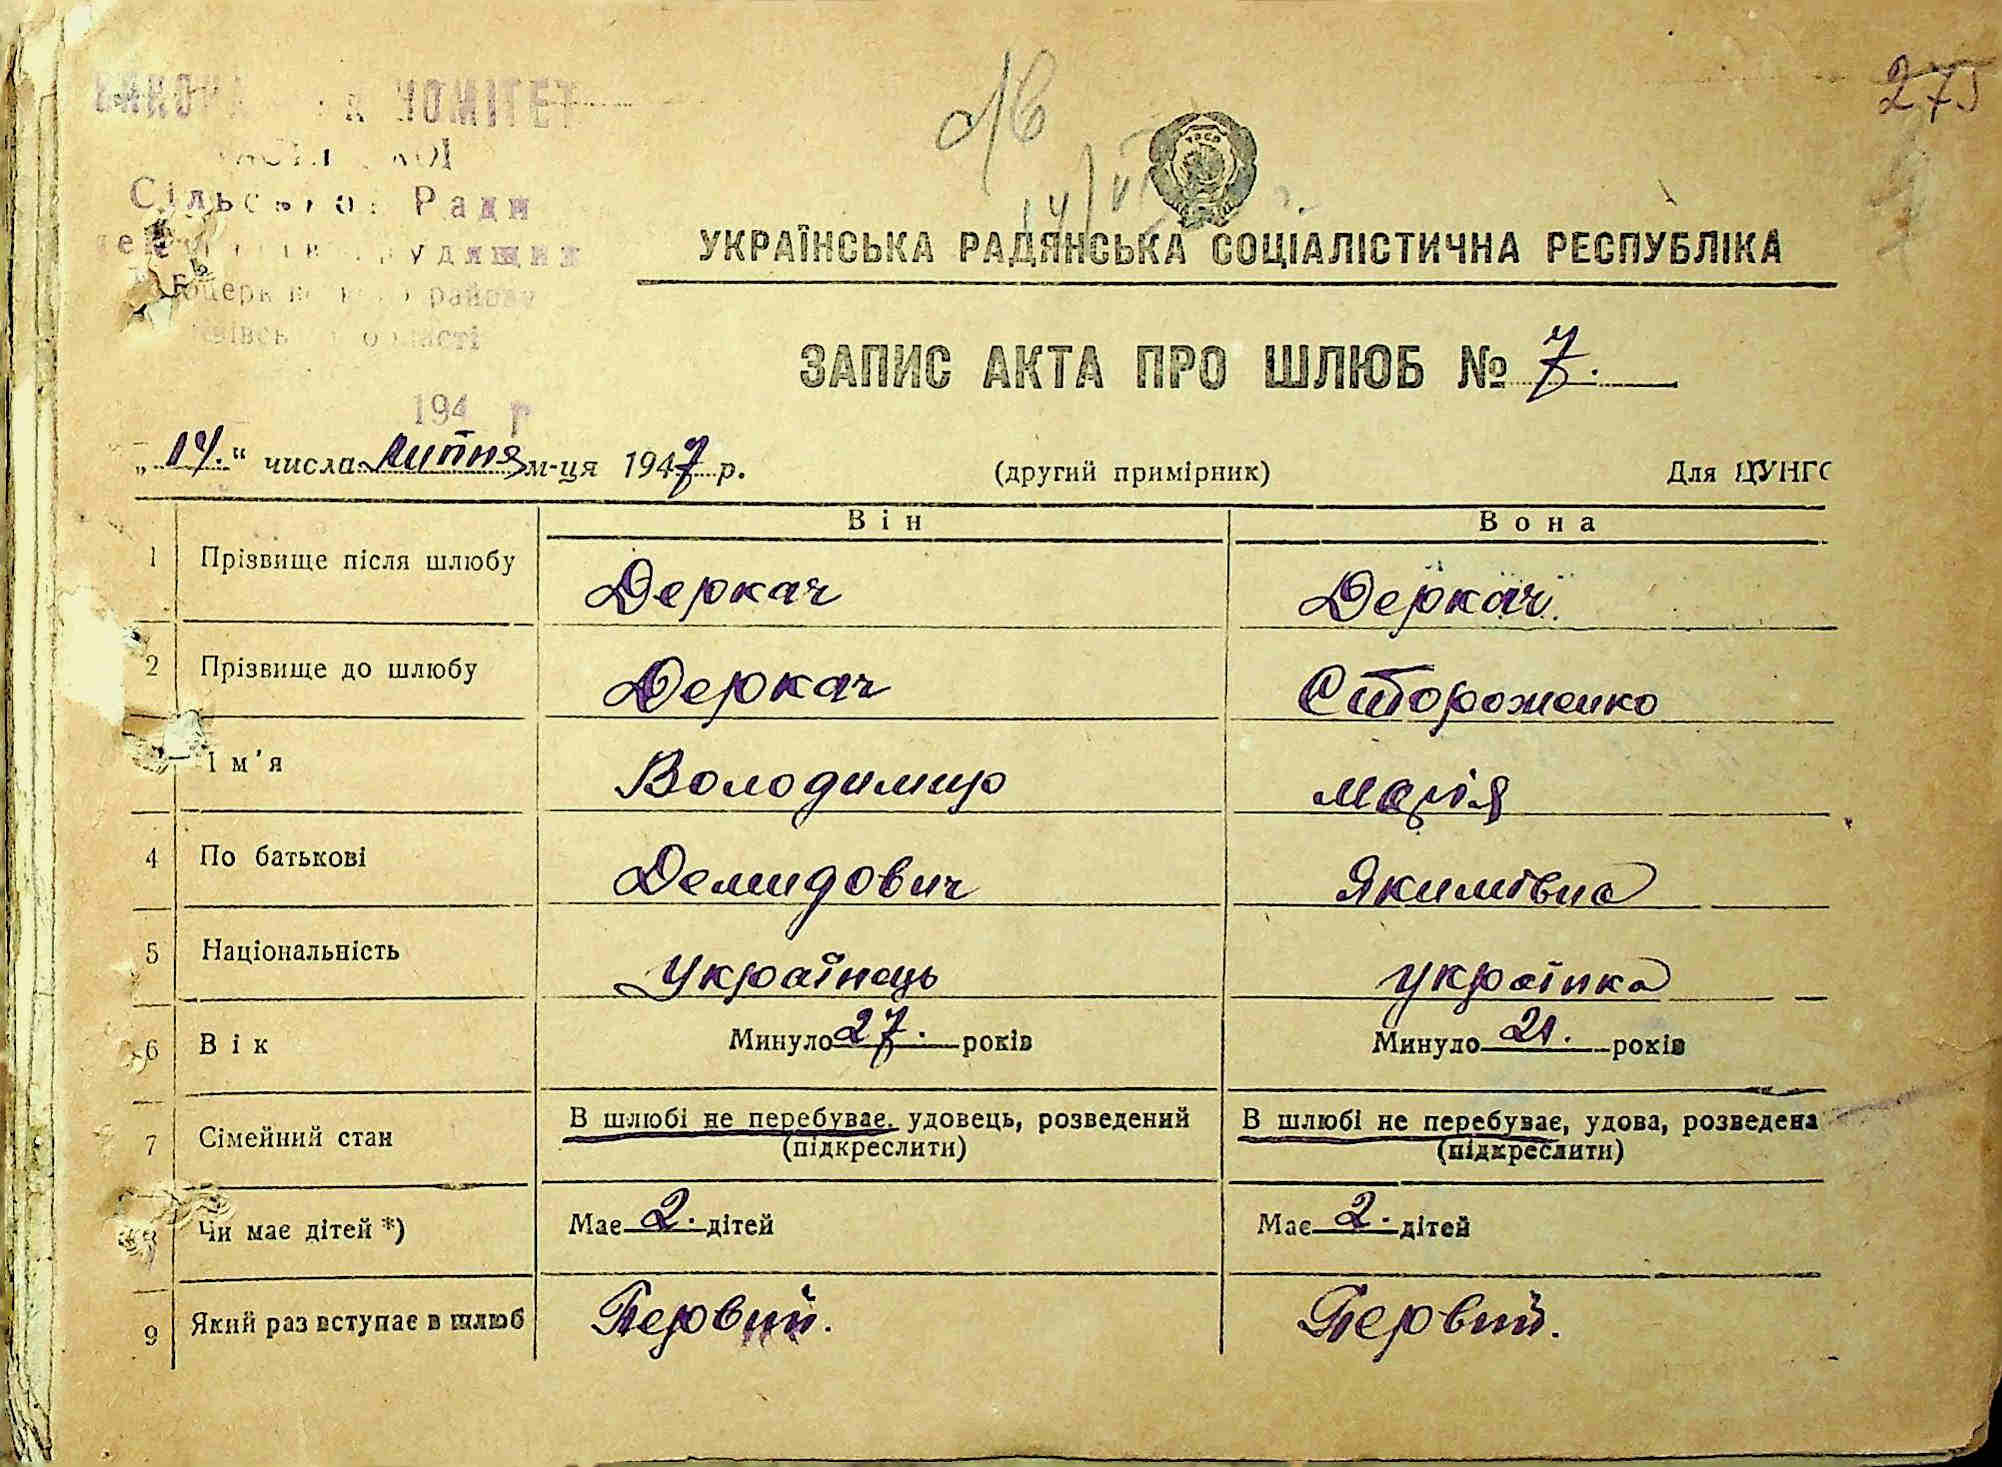 КОМІТЕТ
Сільської Ради
району
області
275
194 г
УКРАЇНСЬКА РАДЯНСЬКА СОЦІАЛІСТИЧНА РЕСПУБЛІКА
ЗАПИС АКТА ПРО ШЛЮБ № 7.
„14.“ числа липня м-ця 1947 р. (другий примірник) Для ЦУНГС
Він Вона
1 Прізвище після шлюбу Деркач Деркач.
2 Прізвище до шлюбу Деркач Стороженко
Ім'я Володимир Марія
4 По батькові Демидович Якимівна
5 Національність Українець українка
6 Вік Минуло 27. років Минуло 21. років
7 Сімейний стан В шлюбі не перебуває, удовець, розведений В шлюбі не перебуває, удова, розведена
(підкреслити) (підкреслити)
Чи має дітей *) Має 2. дітей Має 2. дітей
9 Який раз вступає в шлюб Первий. Первий.